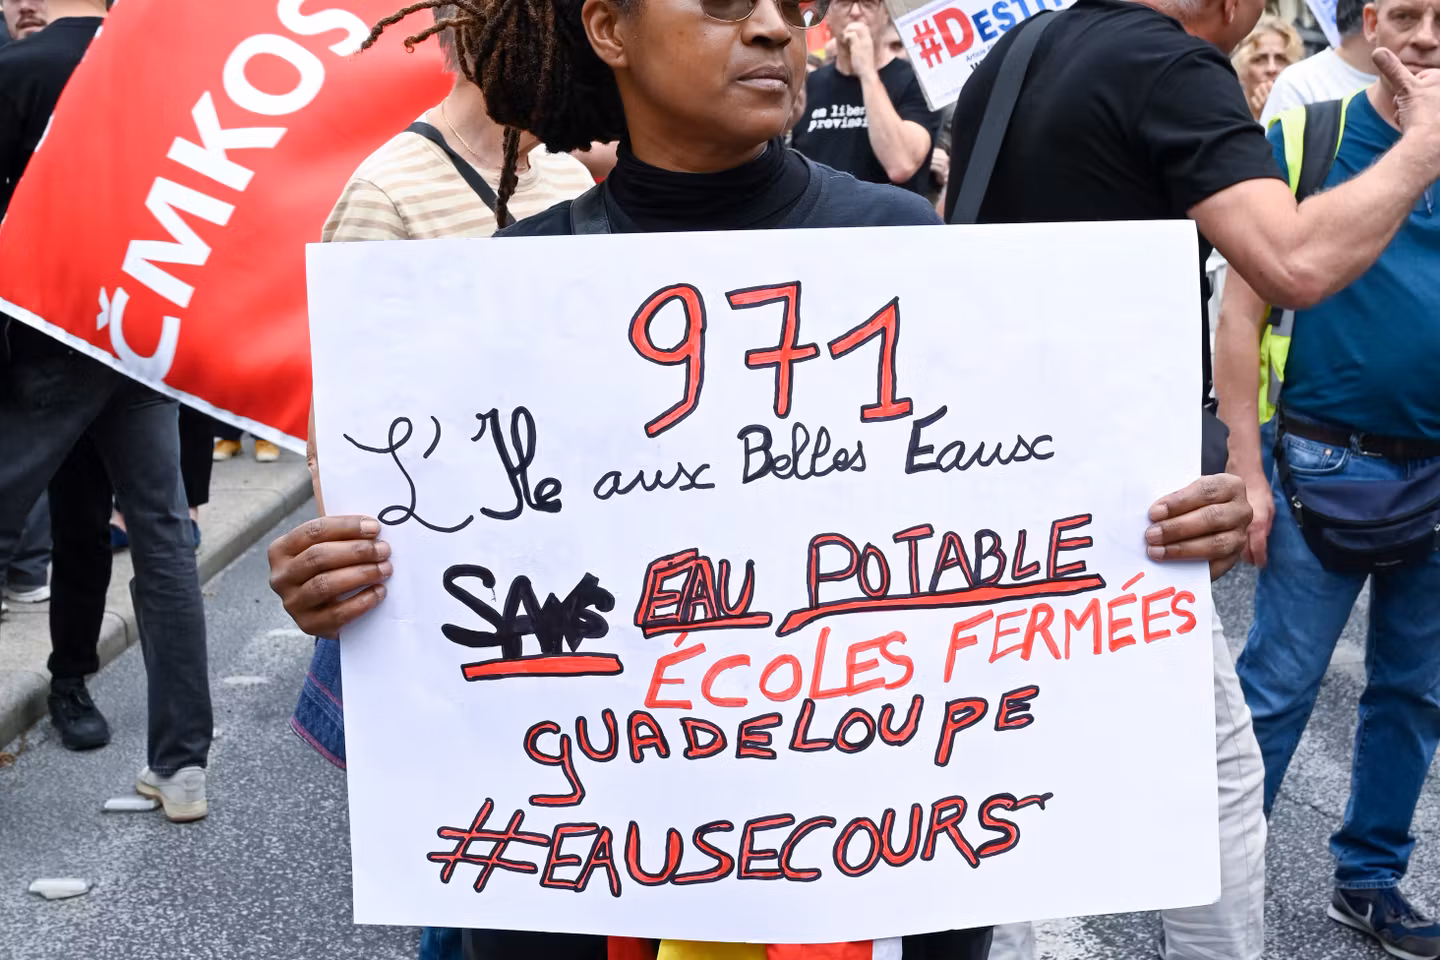 ČMKOS
#DESTIT
em liber
provisoi
971
L'Île aux Belles Eaux
SANS EAU POTABLE
ÉCOLES FERMÉES
GUADELOUPE
#EAUSECOURS